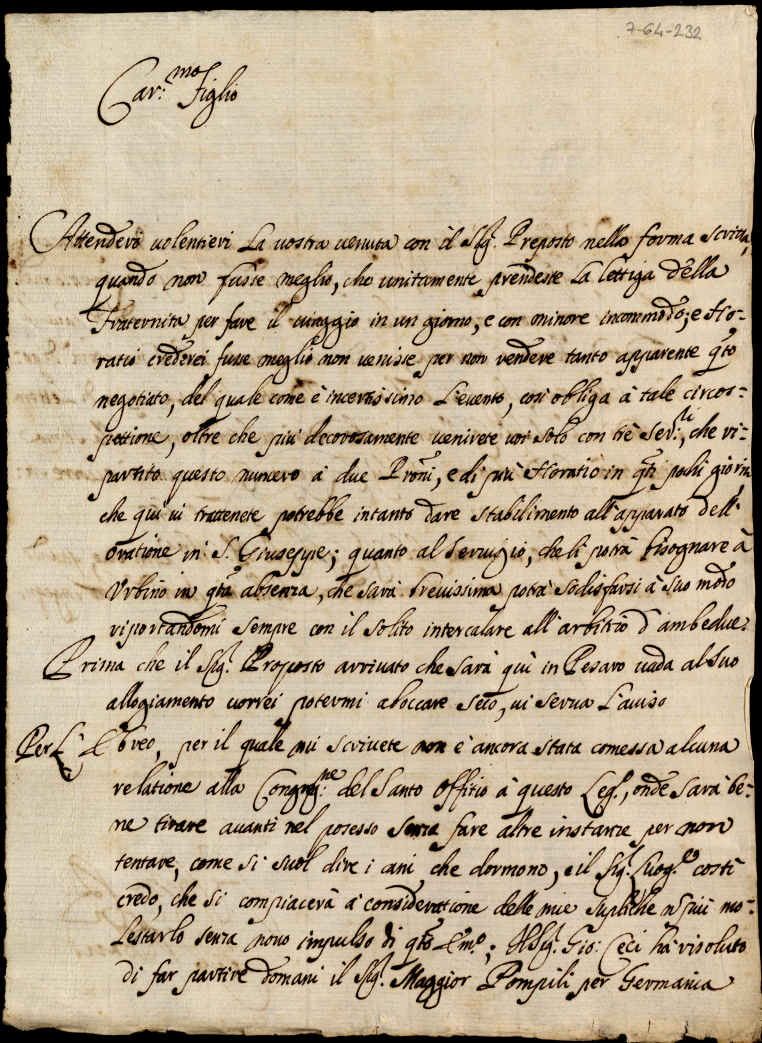 7-64-232
Car:mo Figlio
Attenderò volentieri la vostra venuta con il Sig.r Preposto nella forma scritta,
quando non fusse meglio, che unitamente prendeste la lettiga della
Fraternita per fare il viaggio in un giorno, e con minore incommodo; e Ho-
ratio crederei fusse meglio non venisse per non rendere tanto apparente qsto
negotiato, del quale come è incertissimo l'evento, così obliga à tale circos-
pettione, oltre che più decorosamente venirete voi solo con trè Ser:ri, che ri-
partito questo numero à due Proni, e di più Horatio in qsti pochi giorni,
che qui vi trattenete potrebbe intanto dare stabilimento all'apparato dell'
oratione in S. Giuseppe; quanto al servigio, che li potrà bisognare à
Urbino in qsta absenza, che sarà brevissima potrà sodisfarsi à suo modo
riportandomi sempre con il solito intercalare all'arbitrio d'ambedue.
Prima che il Sig.r Proposto arrivato che sarà quì in Pesaro vada al suo
allogiamento vorrei potermi aboccare seco, vi serva l'aviso
Per l'Ebreo, per il quale mi scrivete non è ancora stata comessa alcuna
relatione alla Congreg:ne del Santo Offitio à questo Leg.o, onde sarà be-
ne tirare avanti nel posesso senza fare altre instanze per non
tentare, come si suol dire i cani che dormono, e il Sig.r Luog.te costì
credo, che si compiacerà à consideratione delle mie supliche n più mo-
lestarlo senza novo impulso di qsto Emo; Il Sig.r Gio: Ceci hà risoluto
di far partire domani il Sig.r Maggior Pompili per Germania